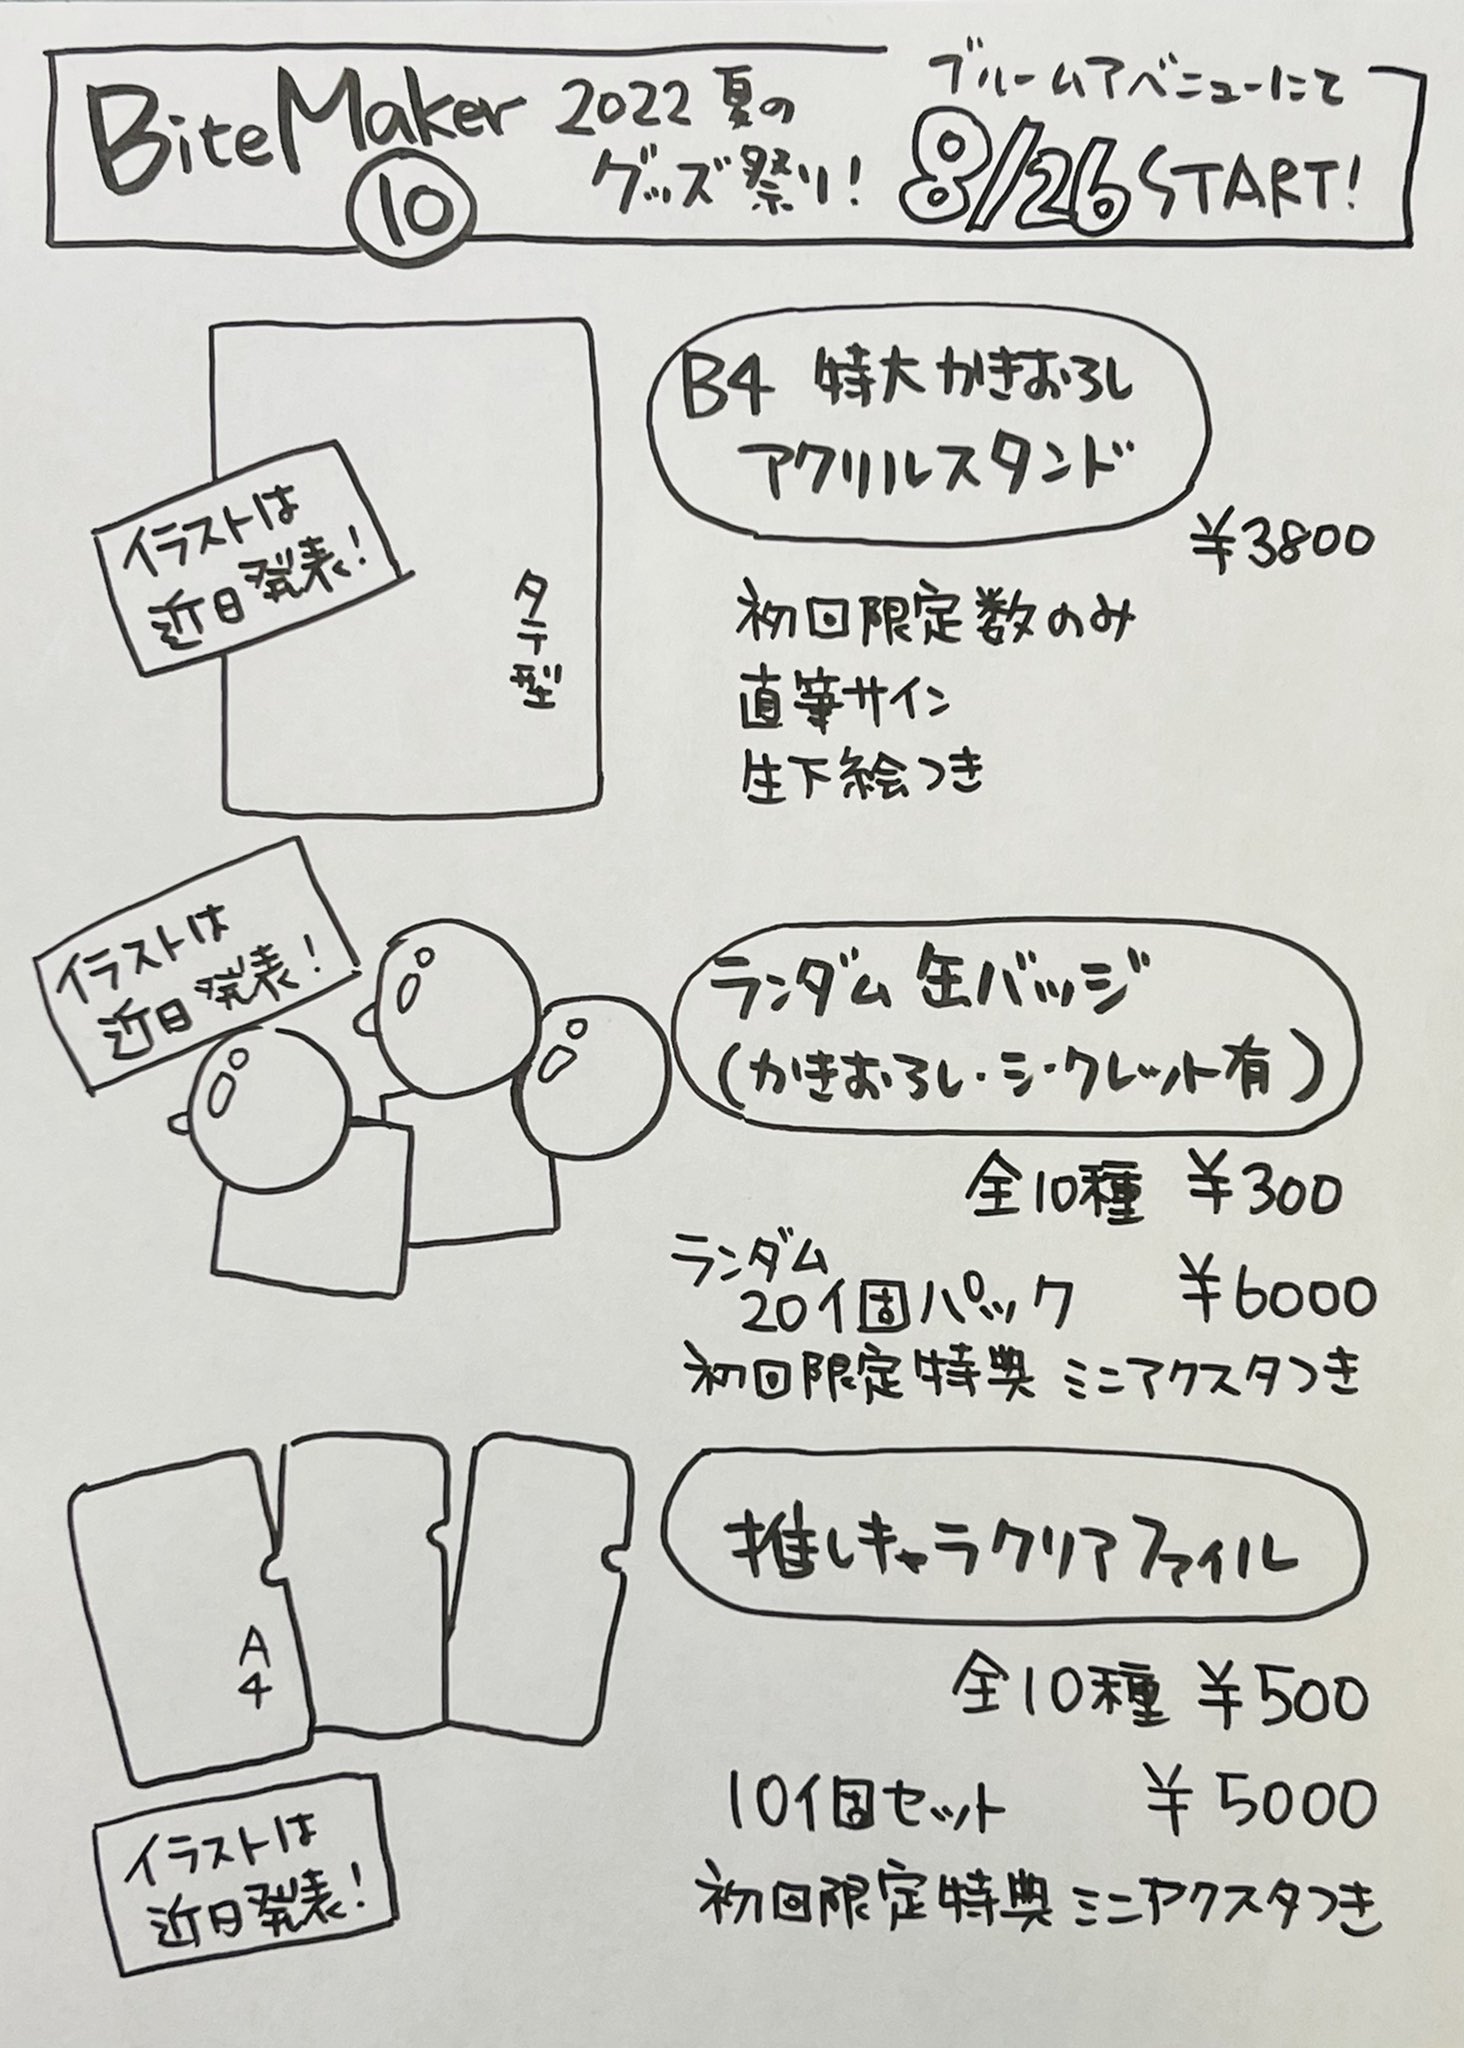 BiteMaker
⑩
2022 夏の
グッズ祭り!
ブルームアベニューにて
8/26 START!
B4 特大かきおろし
アクリルスタンド
¥3800
イラストは
近日発表!
タテ型
初回限定数のみ
直筆サイン
生下絵つき
イラストは
近日発表!
ランダム缶バッジ
(かきおろし・シークレット有)
全10種 ¥300
ランダム
20個パック ¥6000
初回限定特典 ミニアクスタつき
推しキャラクリアファイル
A4
全10種 ¥500
10個セット ¥5000
初回限定特典 ミニアクスタつき
イラストは
近日発表!